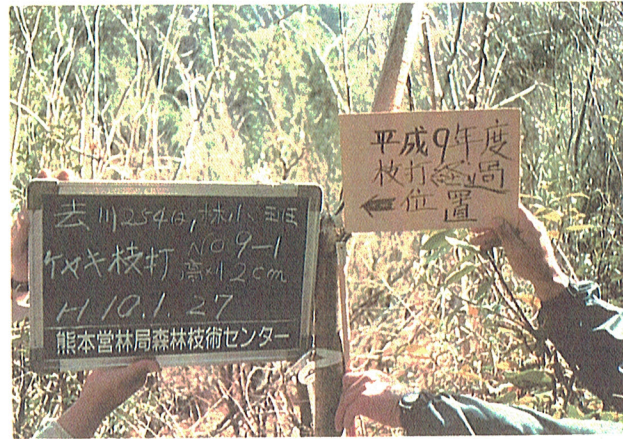 去川254い1林小班
ケヤキ枝打 NO9-1
H10.1.27
熊本営林局森林技術センター
平成9年度
枝打経過
←位置